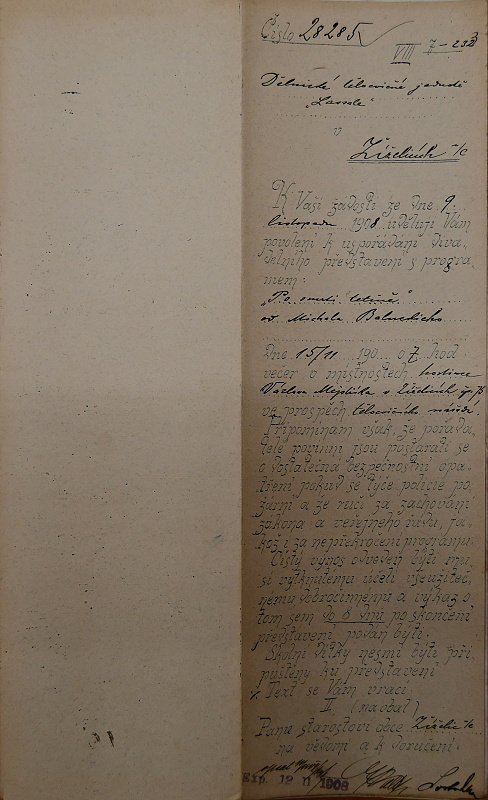 Číslo 28285
VIII 7-232
Dělnické tělocvičné jednotě
„Lassale"
v
Žiželicích n/C
K Vaší žádosti ze dne 9.
listopadu 1908 uděluji Vám
povolení k uspořádání diva
delního představení s progra
mem:
„Po smrti tetině"
od Michala Baluckého
Dne 15/11 190 o 7 hod
večer v místnostech hostince
Václava v Žiželicích čp.
ve prospěch tělocvičného nářadí.
Připomínám však, že pořada
telé povinni jsou postarati se
o dostatečná bezpečnostní opa
tření pokud se týče policie po
žární a že ručí za zachování
zákona a veřejného řádu, ja
kož i za nepřekročení programu.
Čistý výnos odveden býti mu
sí vytknutému účeli všeužiteč
nému dobročinnému a výkaz o
tom sem do 8 dnů po skončení
představení podán býti.
Školní dítky nesmí býti při
puštěny ku představení
Text se Vám vrací
II. (na obal)
Panu starostovi obce Žiželic n/C
na vědomí a k doručení.
Exp. 12 11 1908